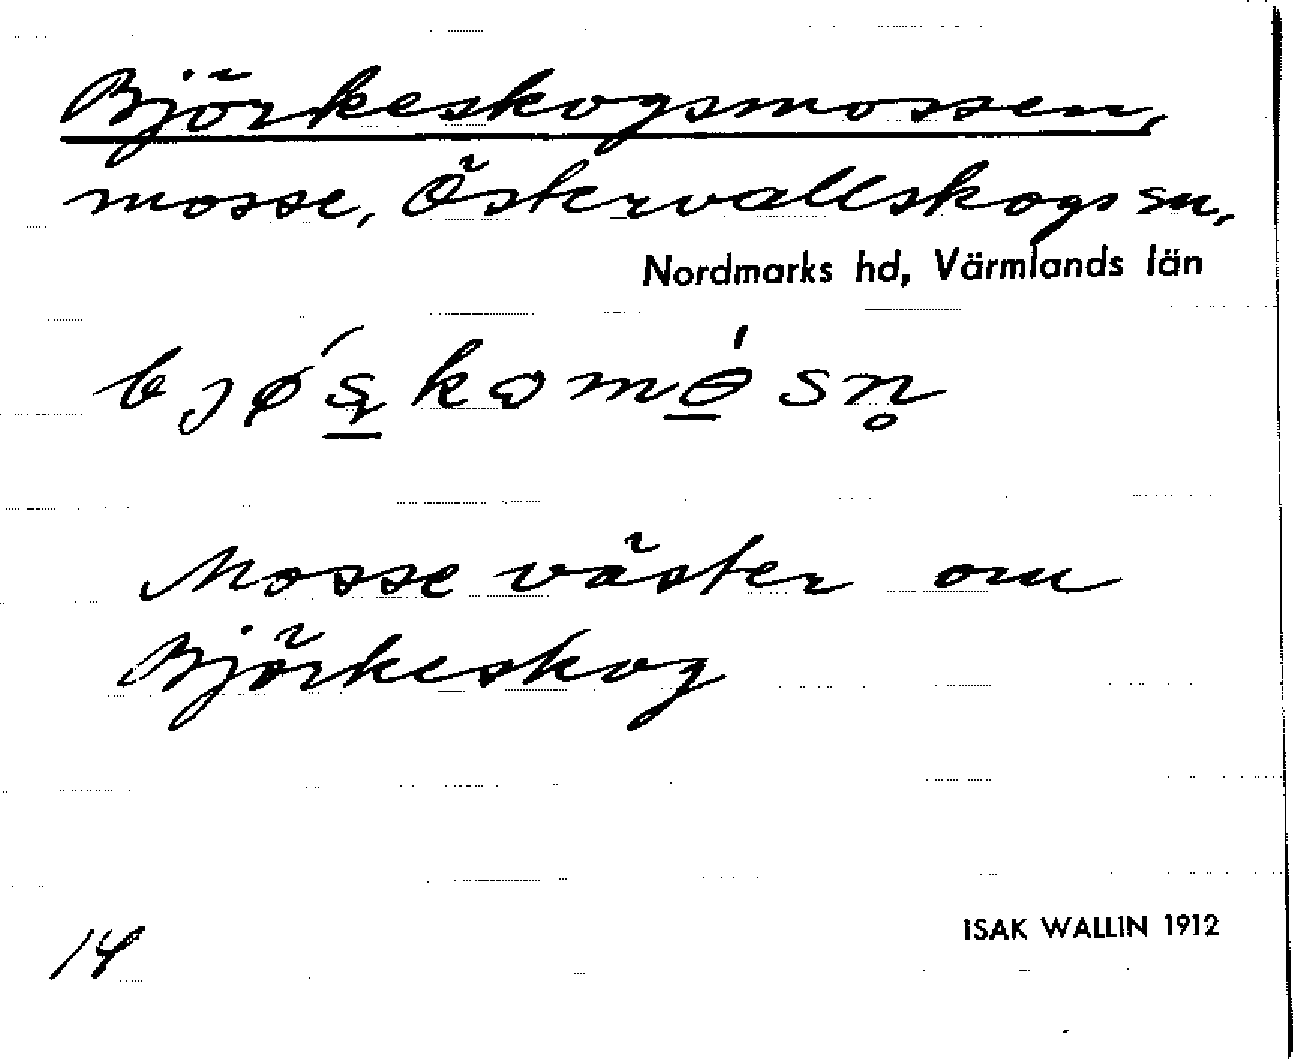 Björkeskogsmossen,
mosse, Östervallskogs sn,
Nordmarks hd, Värmlands län
Mosse väster om
Björkeskog
14
ISAK WALLIN 1912